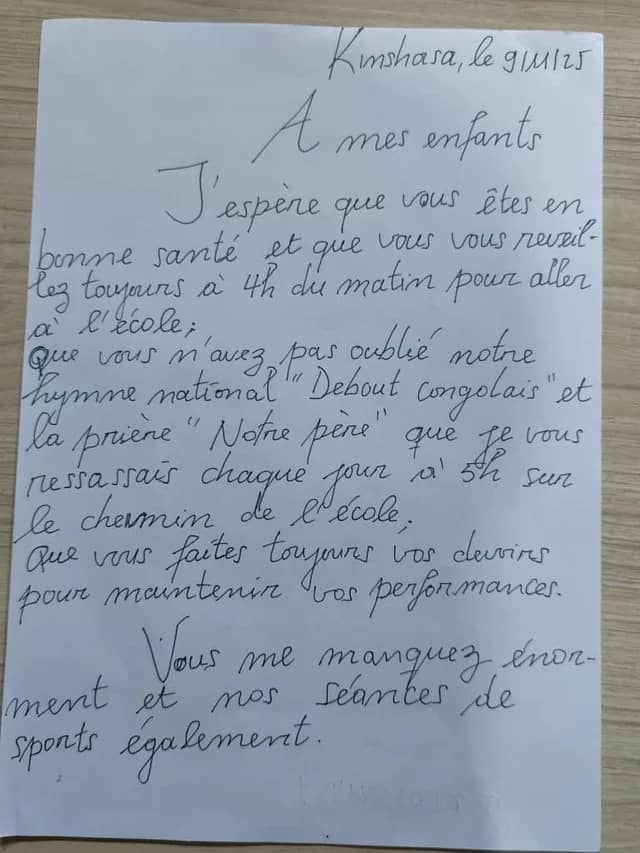 Kinshasa, le 9/11/25
A mes enfants
J'espère que vous êtes en
bonne santé et que vous vous reveil-
lez toujours à 4h du matin pour aller
à l'école;
Que vous n'avez pas oublié notre
hymne national "Debout congolais" et
la prière "Notre père" que je vous
ressassais chaque jour à 5h sur
le chemin de l'école;
Que vous faites toujours vos devoirs
pour maintenir vos performances.
Vous me manquez énor-
ment et nos séances de
sports également.